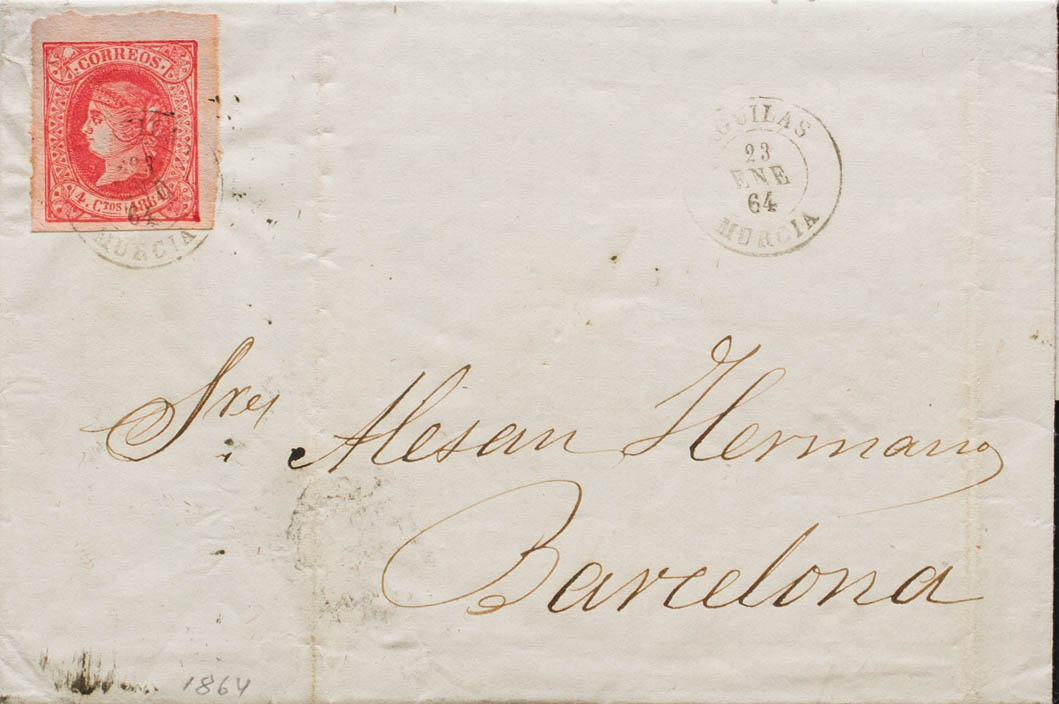 CORREOS.
4. CTOS 1864
23
64
MURCIA
AGUILAS
23
ENE
64
MURCIA
Sres Alesan Hermanos
Barcelona
1864